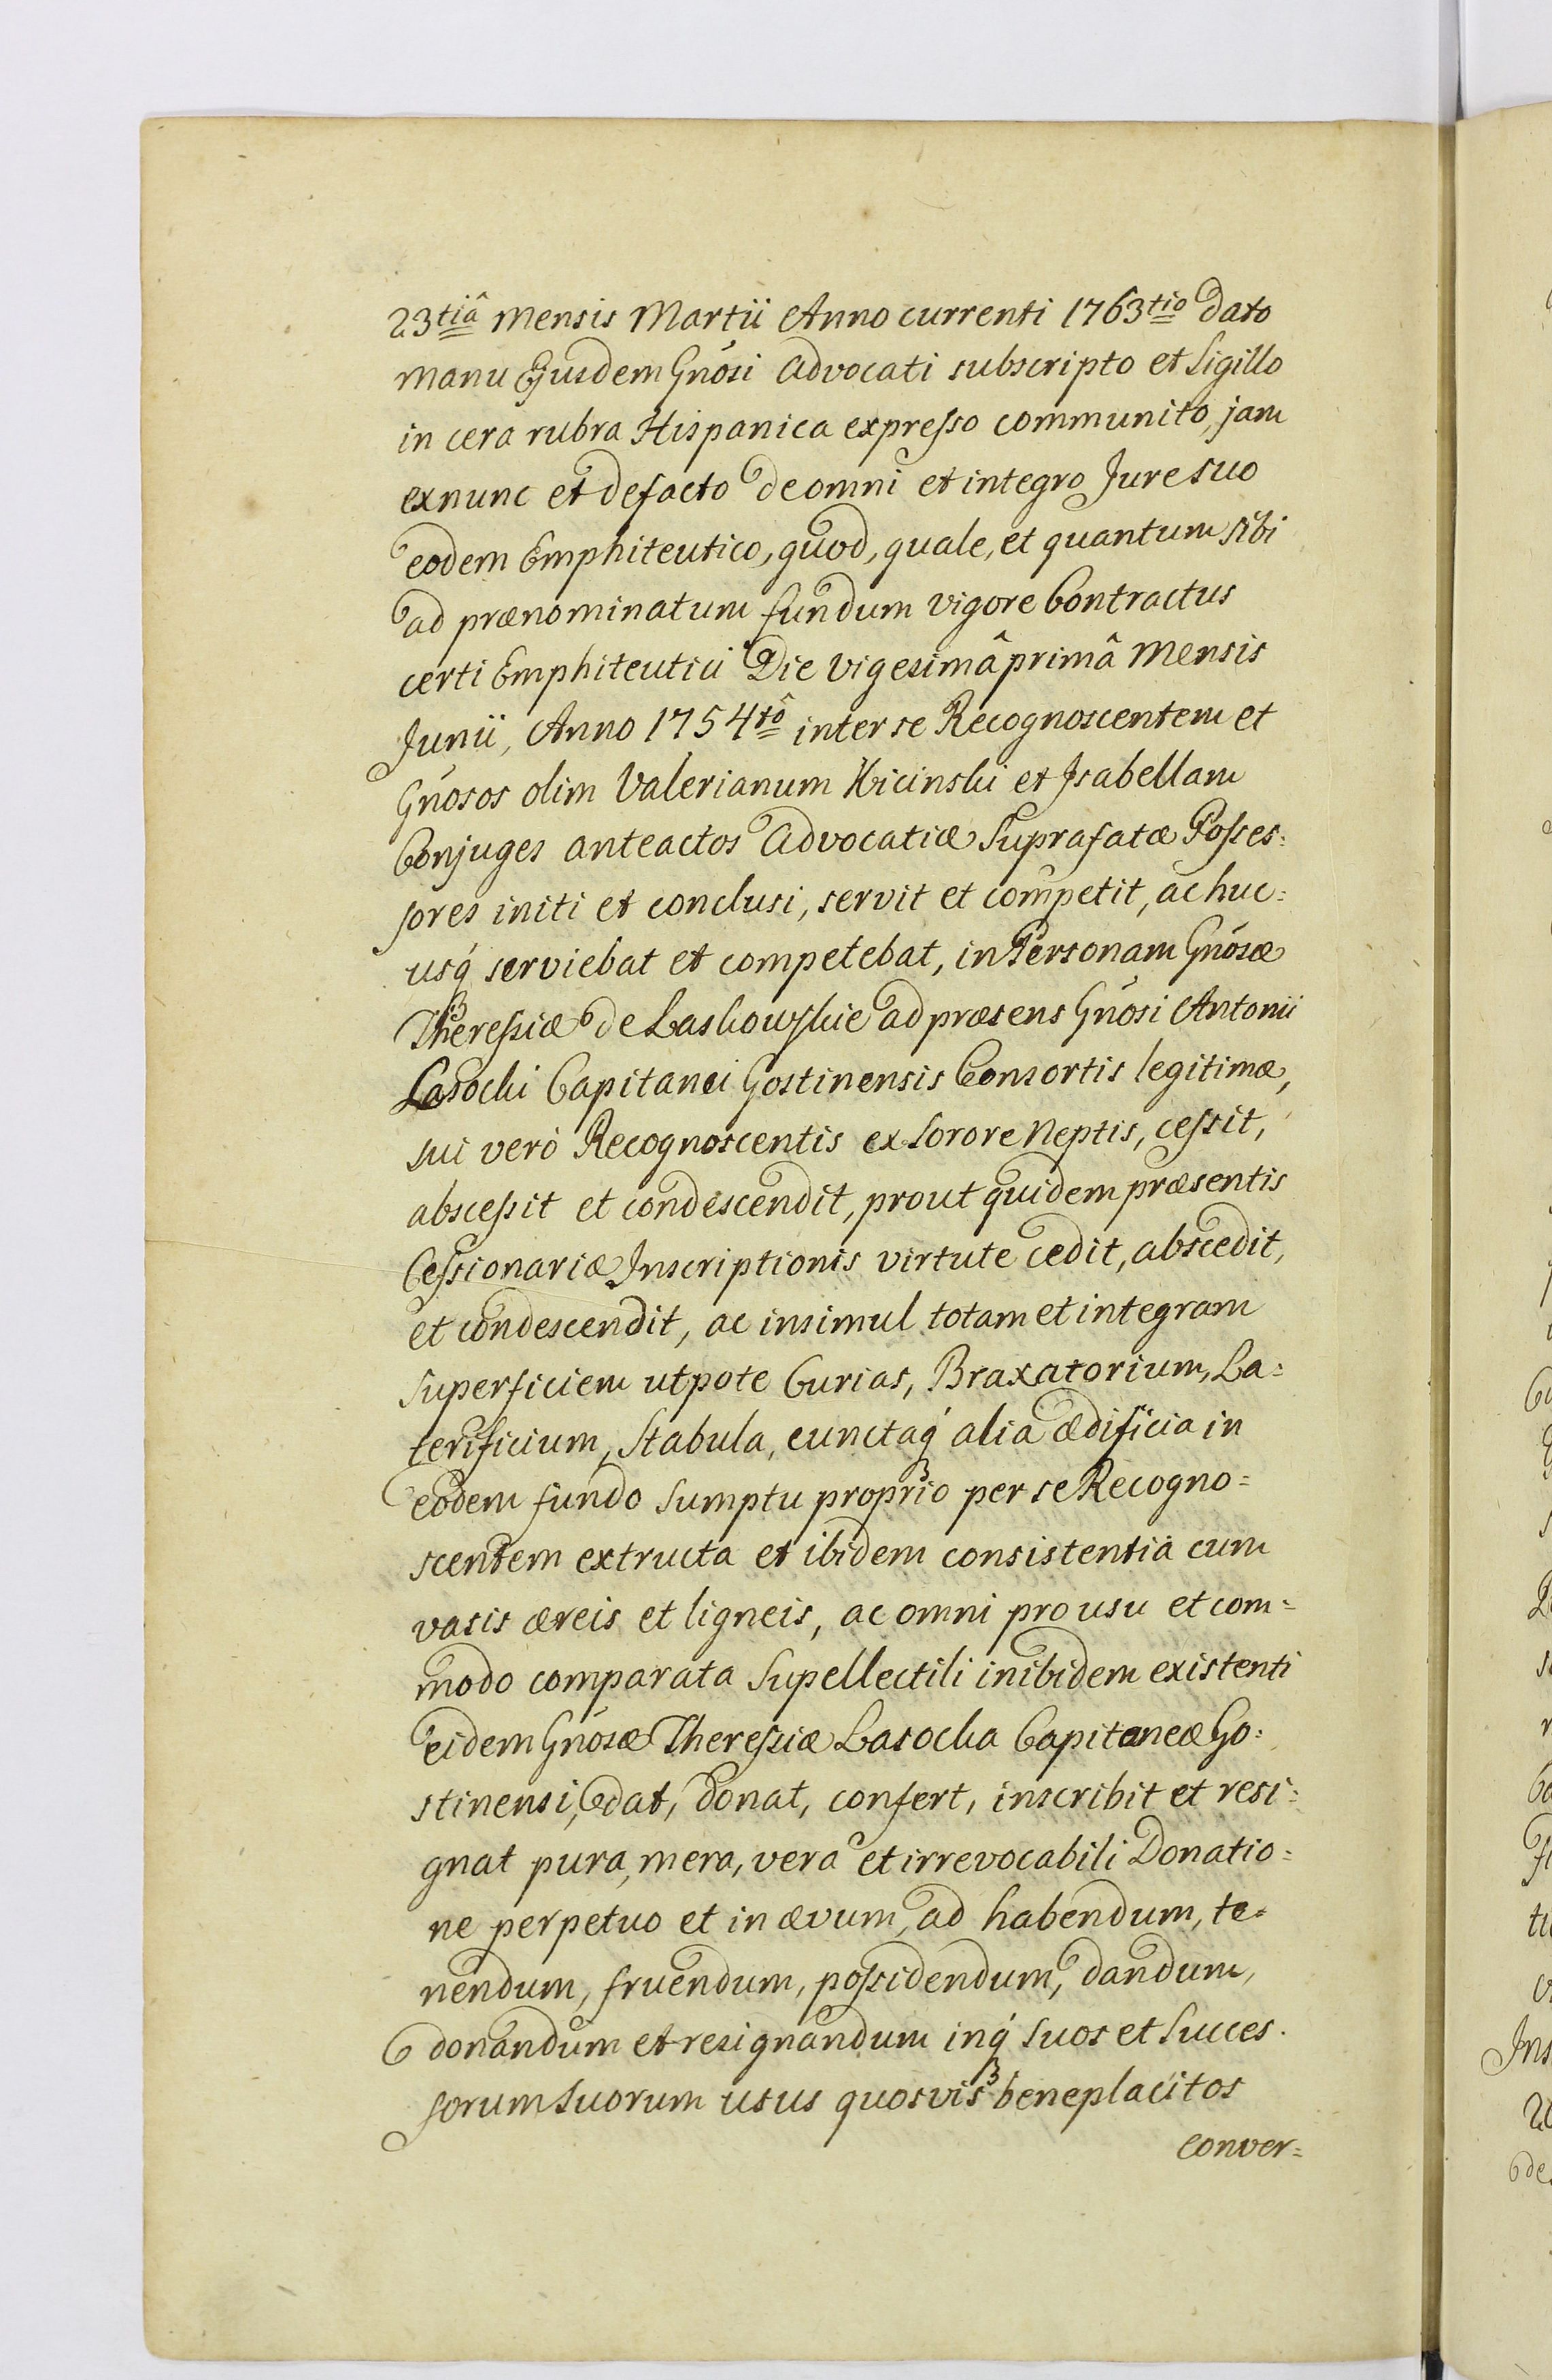 23tiâ Mensis Martii Anno currenti 1763tio dato
manu Ejusdem Gnosi Advocati subscripto et Sigillo
in cera rubra Hispanica expresso communito, jam
exnunc et defacto de omni et integro Jure suo
eodem Emphiteutico, quod, quale, et quantum sibi
ad prænominatum fundum vigore Contractus
certi Emphiteutici Die vigesimâ primâ Mensis
Junii, Anno 1754tô inter se Recognoscentem et
Gnosos olim Valerianum Kicinski et Isabellam
Conjuges anteactos Advocatiæ Suprafatæ Posses=
sores initi et conclusi, servit et competit, ac huc=
usq́ serviebat et competebat, in Personam Gnosæ
Theressiæ de Laskowskie ad præsens Gnosi Antonii
Lasocki Capitanei Gostinensis Consortis legitimæ,
sui verò Recognoscentis ex Sorore Neptis, cessit,
abscessit et condescendit, prout quidem præsentis
Cessionariæ Inscriptionis virtute cedit, abscedit,
et condescendit, ac insimul totam et integram
superficiem utpote Curias, Braxatorium, La=
terificium, Stabula, cunctaq́ alia ædificia in
eodem fundo sumptu proprio per se Recogno=
scentem extructa et ibidem consistentia cum
vasis æreis et ligneis, ac omni pro usu et com=
modo comparata Supellectili inibidem existenti
eidem Gnosæ Theressiæ Lasocka Capitaneæ Go=
stinensi, dat, donat, confert, inscribit et resi=
gnat pura, mera, vera et irrevocabili Donatio=
ne perpetuo et in ævum, ad habendum, te=
nendum, fruendum, possidendum, dandum,
donandum et resignandum inq́ suos et Succes=
sorum Suorum usus quosvis beneplacitos
conver=